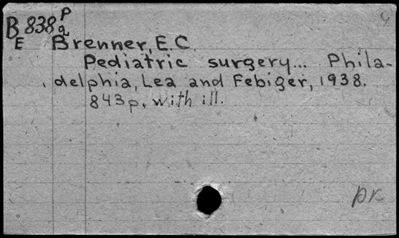 B838 P a
E
Brenner, E.C.
Pediatric surgery... Phila-
delphia, Lea and Febiger, 1938.
843p. with ill.
pr